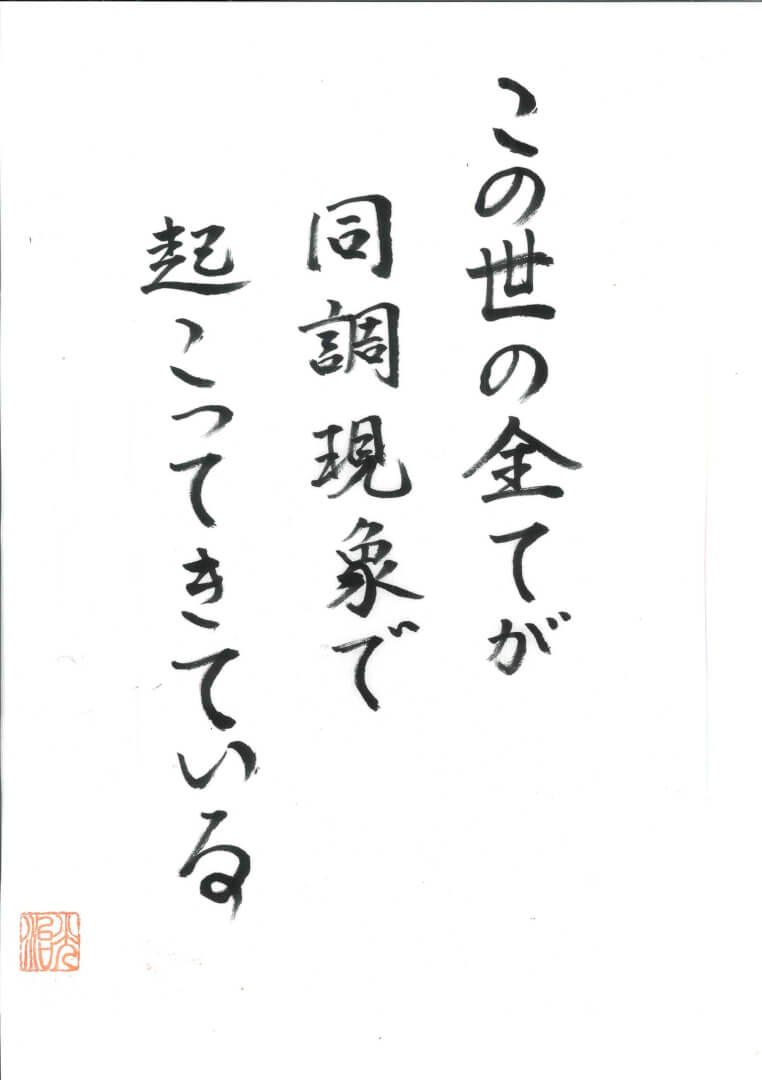 この世の全てが
同調現象で
起こってきている